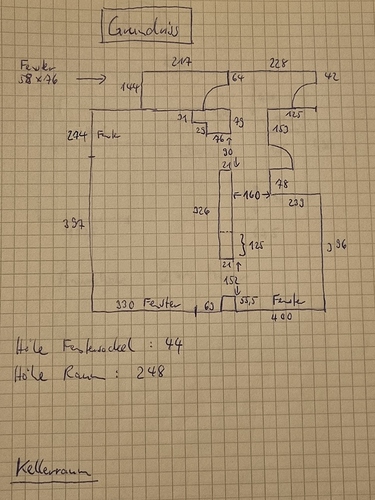 Grundriss
217
228
Fenster
58 x 76
144
64
42
125
91
79
153
29
76
274
90
21
397
326
160
78
233
125
396
21
152
330 Fenster
63
55,5
Fenster
400
Höhe Fenstersockel : 44
Höhe Raum : 248
Kellerraum